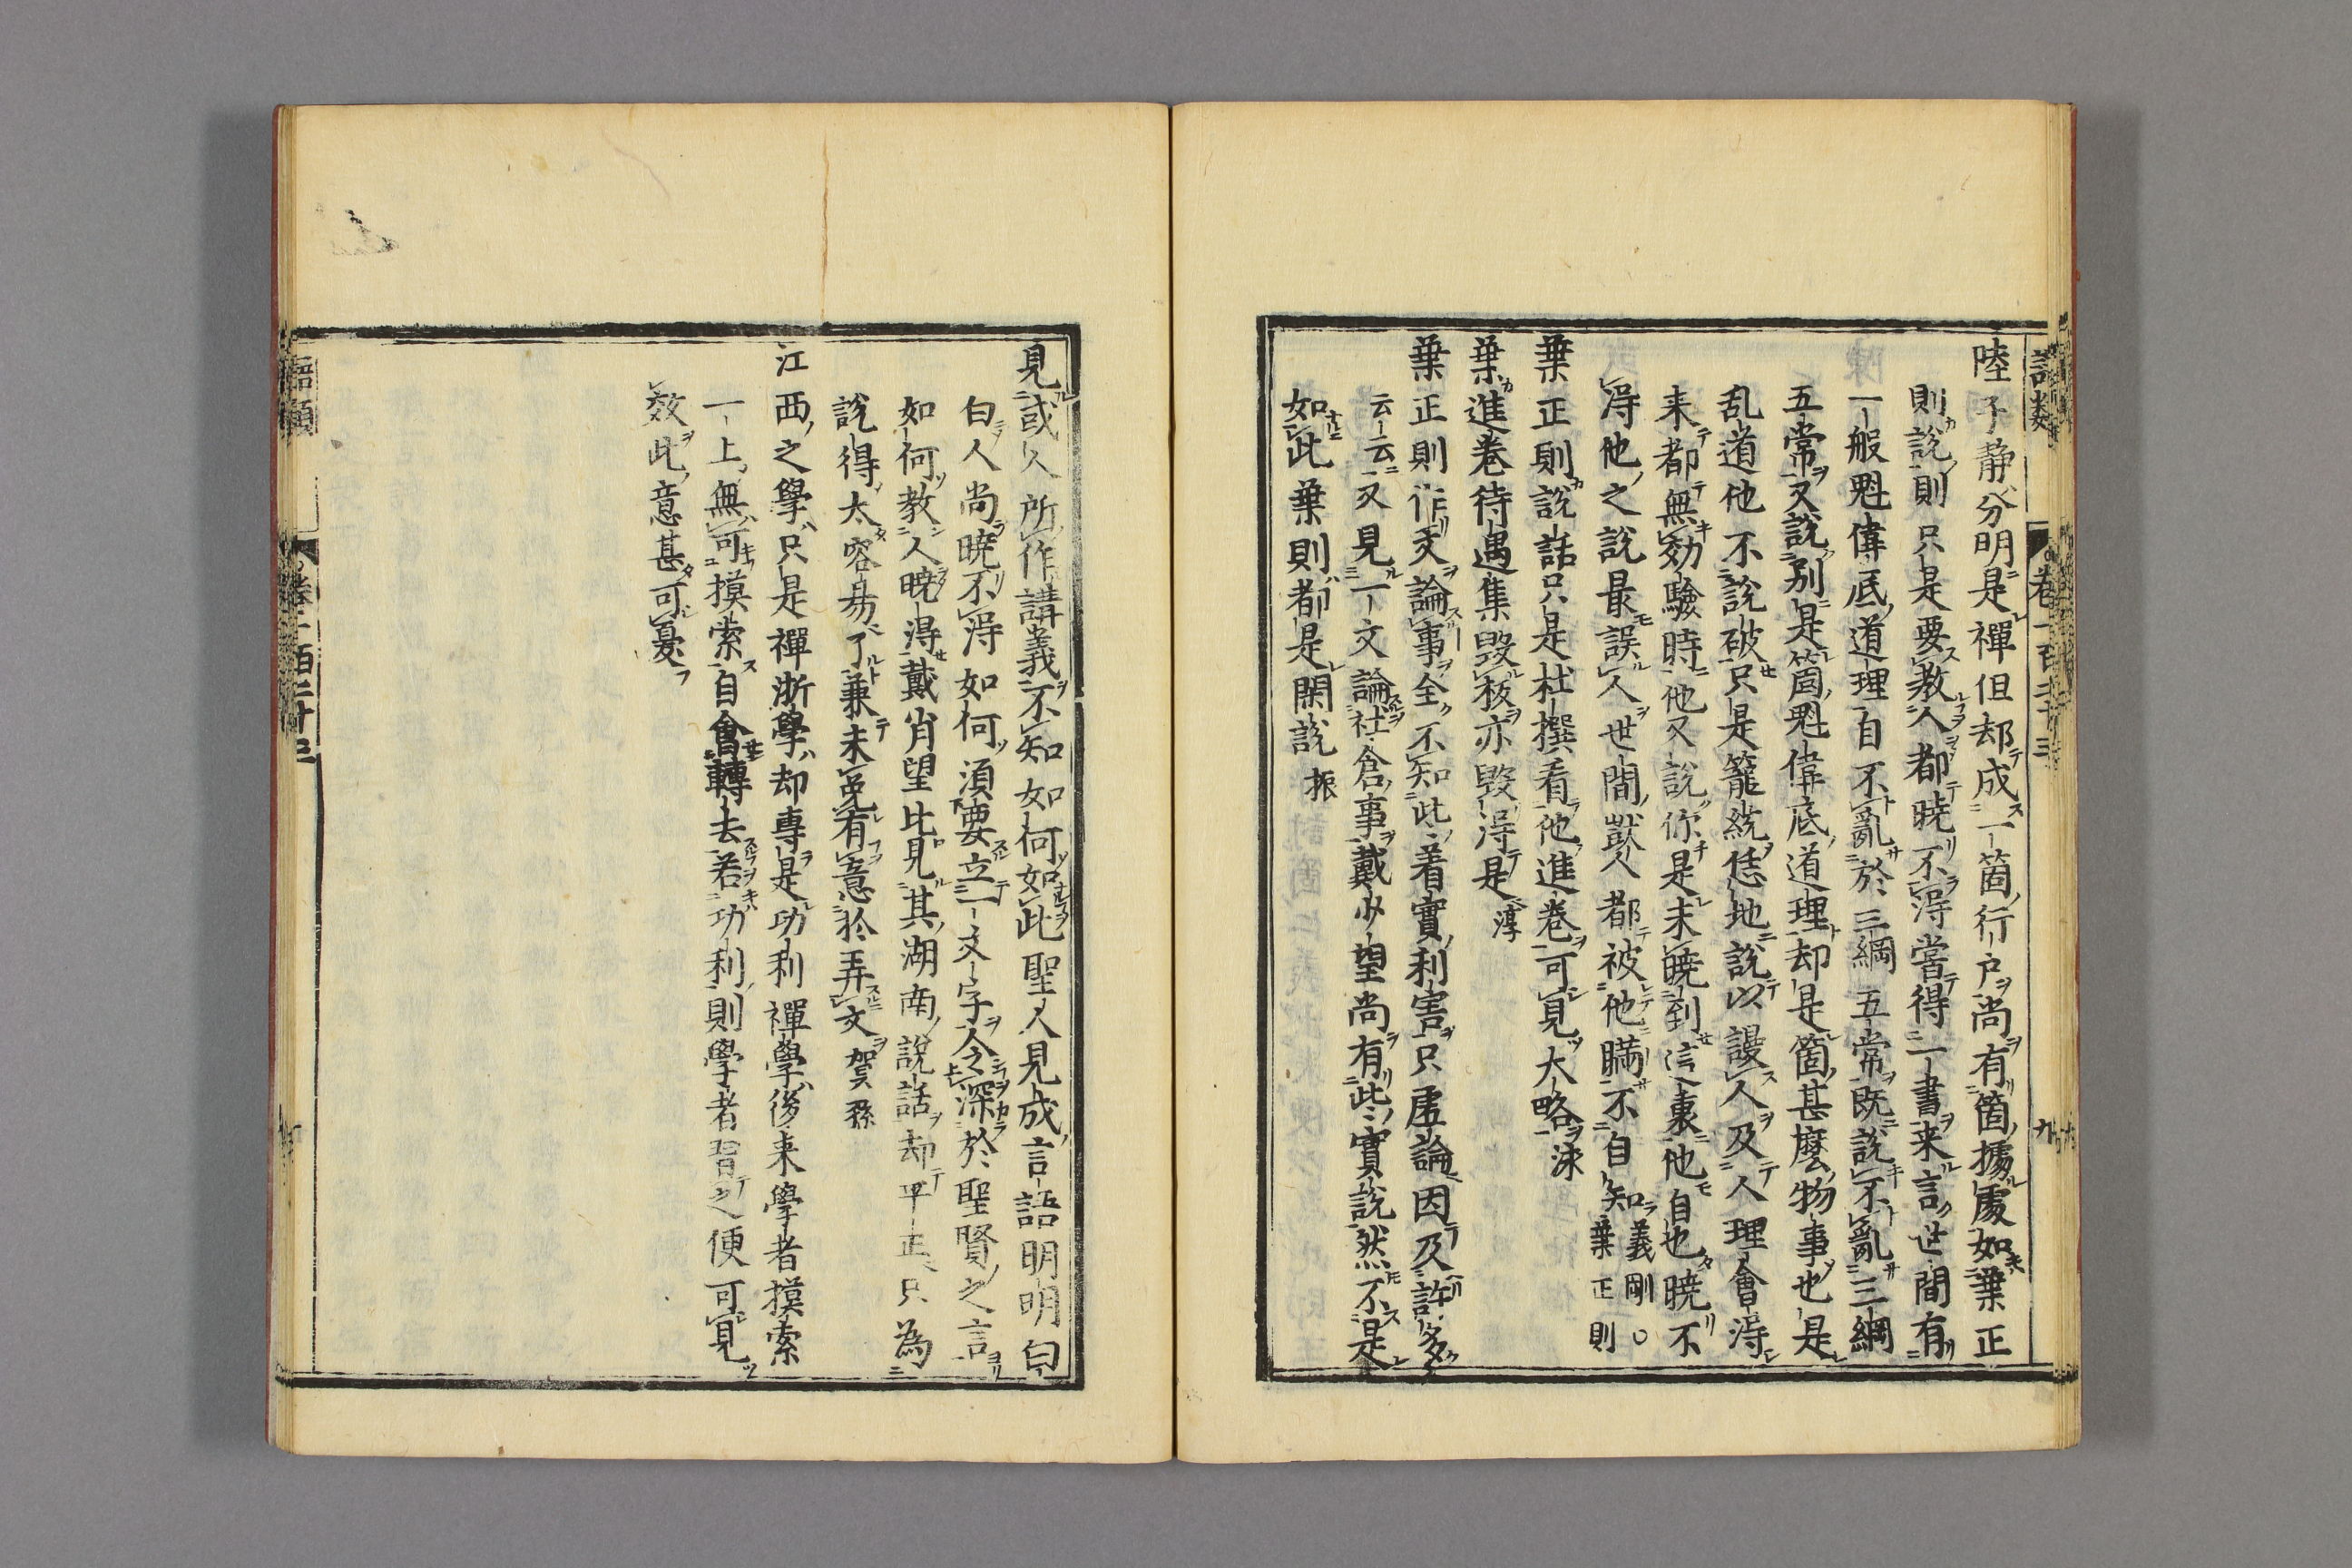 語類 卷一百二十三 九
陸子静分明是禪但却成一箇行户尚有箇據處如葉正
則說則只是要教人都曉不得嘗得一書来言世間有
一般魁偉底道理自不亂於三綱五常既說不亂三綱
五常又說别是箇魁偉底道理却是箇甚麼物事也是
乱道他不說破只是籠統恁地說以謾人及人理會得
来都無効驗時他又說你是未曉到這裏他自也曉不
得他之說最誤人世間獃人都被他瞞不自知義剛○葉正則
葉正則說話只是杜撰看他進卷可見大略泳
葉進卷待遇集毀板亦毀得是淳
葉正則作文論事全不知此着實利害只虚論因及許多
云云又見一文論社倉事戴少望尚有此實說然不是
如此葉則都是閑說振
見或人所作講義不知如何如此聖人見成言語明明白
白人尚曉不得如何須要立一文字令深於聖賢之言
如何教人曉得戴肖望比見其湖南說話却平正只為
說得太容易了兼未免有意於弄文賀孫
江西之學只是禪浙學却專是功利禪學後来學者摸索
一上無可摸索自會轉去若功利則學者習之便可見
效此意甚可憂
語類 卷一百二十三